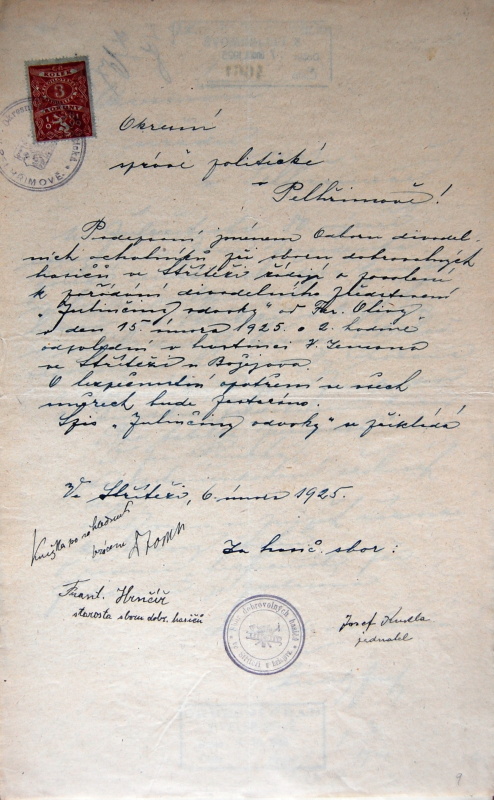 KOLEK
3
KORUNY
1919
Okresní
správě politické
v Pelhřimově!
Podepsaní jménem Odboru divadel-
ních ochotníků při sboru dobrovolných
hasičů ve Stříteži žádají o povolení
k pořádání divadelního představení
„Julinčiny vdavky" od Fr. Olivy
v den 15. února 1925 o 2. hodině
odpolední v hostinci V.
ve Stříteži u Božejova.
O bezpečnostní opatření ve všech
směrech bude postaráno.
Spis „Julinčiny vdavky" se přikládá
Ve Stříteži, 6. února 1925.
Knížka po nahlédnutí
vrácena
Za hasič. sbor:
Frant. Hrnčíř
starosta sboru dobr. hasičů
Josef Kudla
jednatel
Sbor dobrovolných hasičů
9